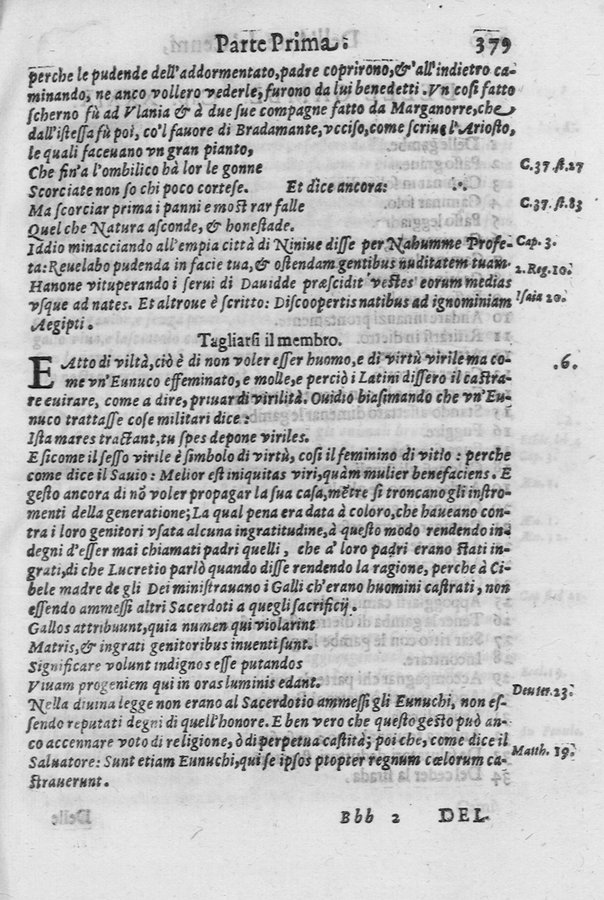 Parte Prima. 379
perche le pudende dell'addormentato, padre coprirono, & all'indietro ca-
minando, ne anco vollero vederle, furono da lui benedetti. Vn così fatto
scherno fù ad Vlania & à due sue compagne fatto da Marganorre, che
dall'istessa fù poi, co'l fauore di Bradamante, vcciso, come scriue l'Ariosto,
le quali faceuano vn gran pianto,
Che fin'a l'ombilico hà lor le gonne C.37.st.27
Scorciate non so chi poco cortese. Et dice ancora:
Ma scorciar prima i panni e mostrar falle C.37.st.83
Quel che Natura asconde, & honestade.
Iddio minacciando all'empia città di Niniue disse per Nahumme Profe- Cap. 3.
ta: Reuelabo pudenda in facie tua, & ostendam gentibus nuditatem tuam.
Hanone vituperando i serui di Dauidde præscidit vestes eorum medias 2. Reg. 10.
vsque ad nates. Et altroue è scritto: Discoopertis natibus ad ignominiam Isaia 20.
Aegipti.
Tagliarsi il membro.
E Atto di viltà, ciò è di non voler esser huomo, e di virtù virile ma co- .6.
me vn'Eunuco effeminato, e molle, e perciò i Latini dissero il castra-
re euirare, come a dire, priuar di virilità. Ouidio biasimando che vn'Eu-
nuco trattasse cose militari dice:
Ista mares tractant, tu spes depone viriles.
E sicome il sesso virile è simbolo di virtù, così il feminino di vitio: perche
come dice il Sauio: Melior est iniquitas viri, quàm mulier benefaciens. E
gesto ancora di nõ voler propagar la sua casa, mẽtre si troncano gli instro-
menti della generatione; La qual pena era data à coloro, che haueano con-
tra i loro genitori vsata alcuna ingratitudine, à questo modo rendendo in-
degni d'esser mai chiamati padri quelli, che a' loro padri erano stati in-
grati, di che Lucretio parlò quando disse rendendo la ragione, perche à Ci-
bele madre de gli Dei ministrauano i Galli ch'erano huomini castrati, non
essendo ammessi altri Sacerdoti a quegli sacrificij.
Gallos attribuunt, quia numen qui violarint
Matris, & ingrati genitoribus inuenti sunt.
Significare volunt indignos esse putandos
Viuam progeniem qui in oras luminis edant.
Nella diuina legge non erano al Sacerdotio ammessi gli Eunuchi, non es- Deuter. 23.
sendo reputati degni di quell'honore. E ben vero che questo gesto può an-
co accennare voto di religione, ò di perpetua castità; poi che, come dice il
Saluatore: Sunt etiam Eunuchi, qui se ipsos ptopter regnum cœlorum ca- Matth. 19.
strauerunt.
Bbb 2 DEL